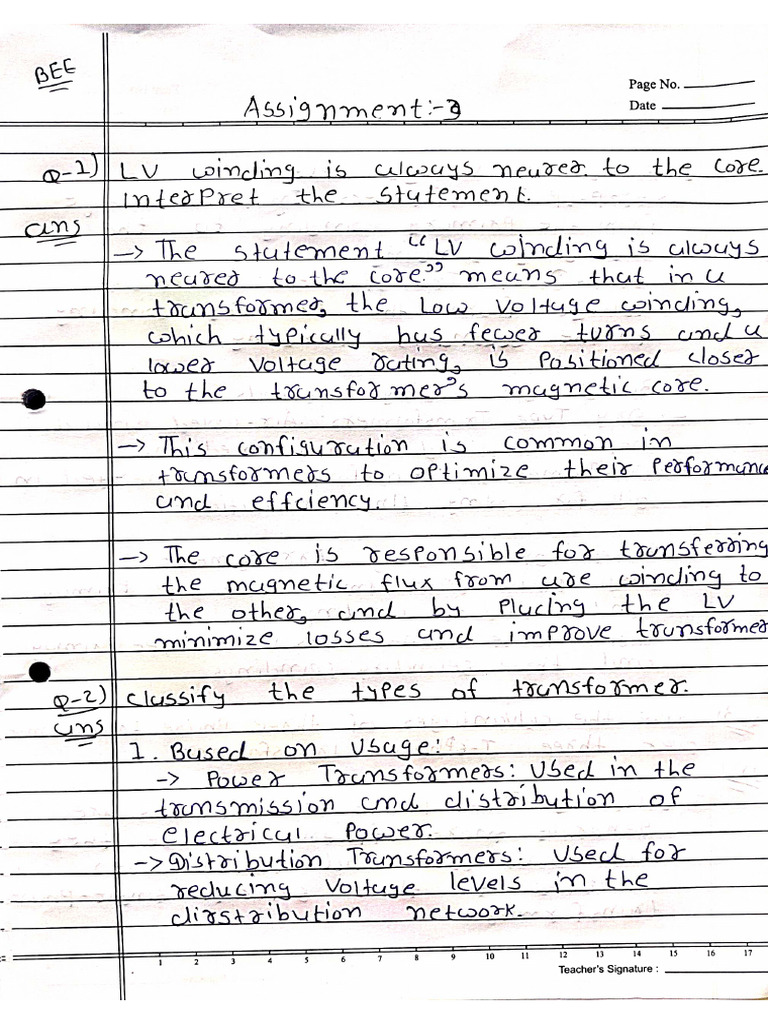 BEE
Page No.
Date
Assignment:-3
Q-1) LV winding is always nearer to the core.
Interpret the statement.
ans
→ The statement "LV winding is always
nearer to the core." means that in a
transformer, the low voltage winding,
which typically has fewer turns and a
lower voltage rating, is positioned closer
to the transformer's magnetic core.
→ This configuration is common in
transformers to optimize their performance
and effciency.
→ The core is responsible for transferring
the magnetic flux from are winding to
the other, and by placing the LV
minimize losses and improve transformer
Q-2) classify the types of transformer.
ans
1. Based on usage:
→ Power Transformers: Used in the
transmission and distribution of
electrical power.
→ Distribution Transformers: Used for
reducing voltage levels in the
dirstribution network.
1 2 3 4 5 6 7 8 9 10 11 12 13 14 15 16 17
Teacher's Signature :